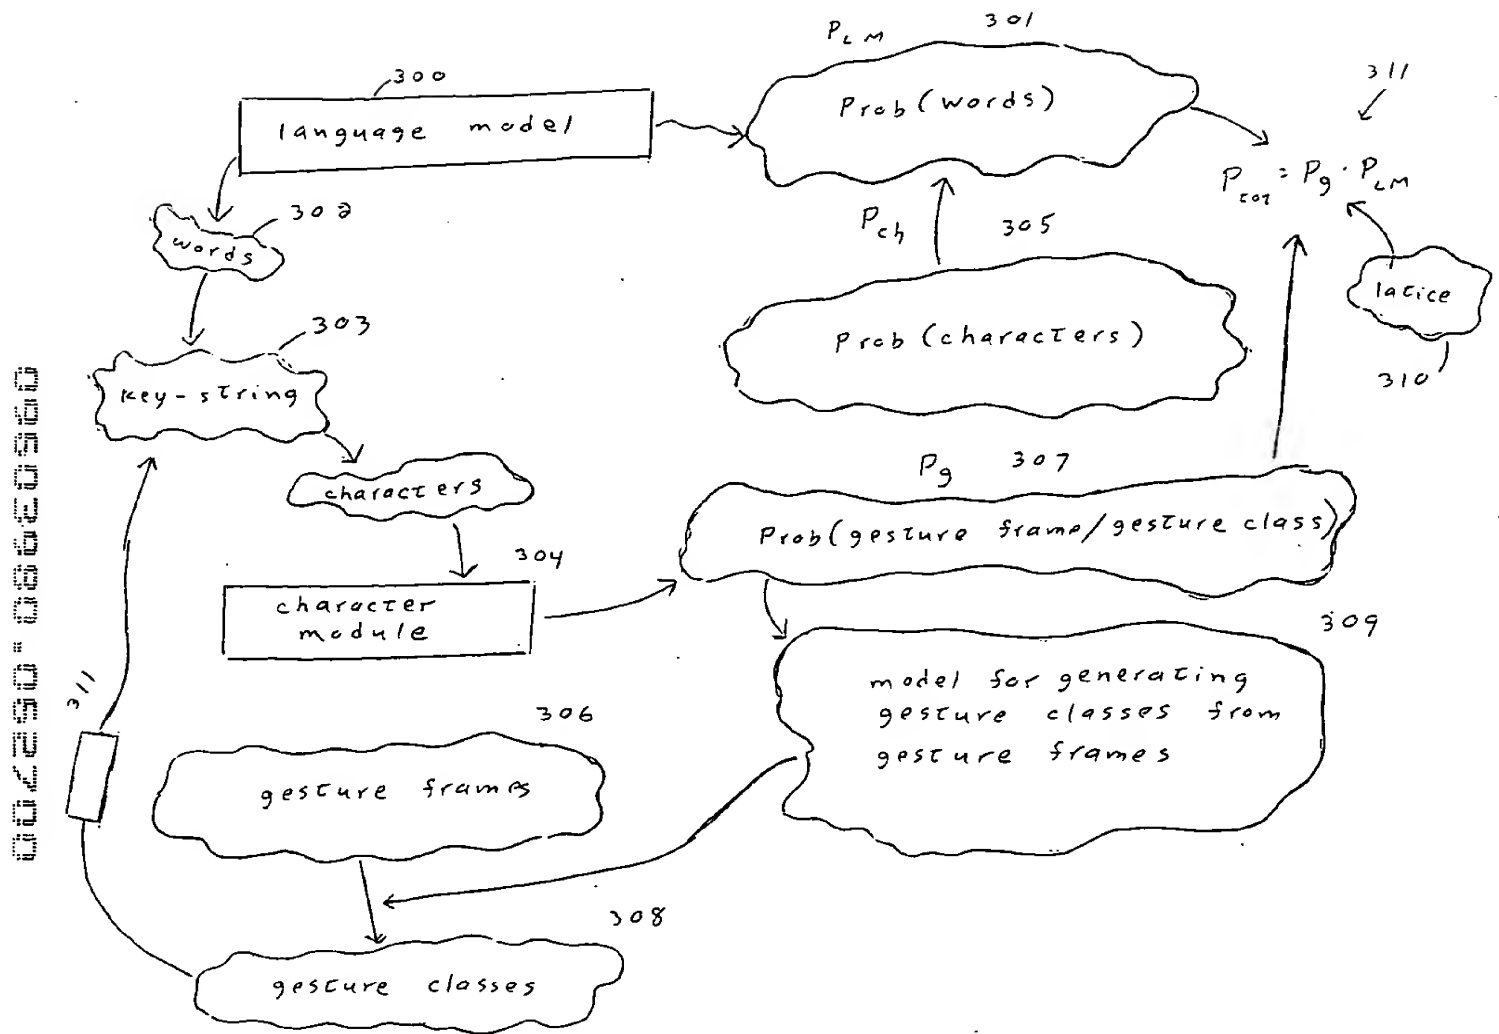 P_LM 301
300
311
language model
Prob(words)
P_tot = P_g · P_LM
302
words
P_ch 305
303
key-string
Prob(characters)
latice
310
characters
P_g 307
Prob(gesture frame/gesture class)
304
character
module
309
model for generating
gesture classes from
gesture frames
311
306
gesture frames
308
gesture classes